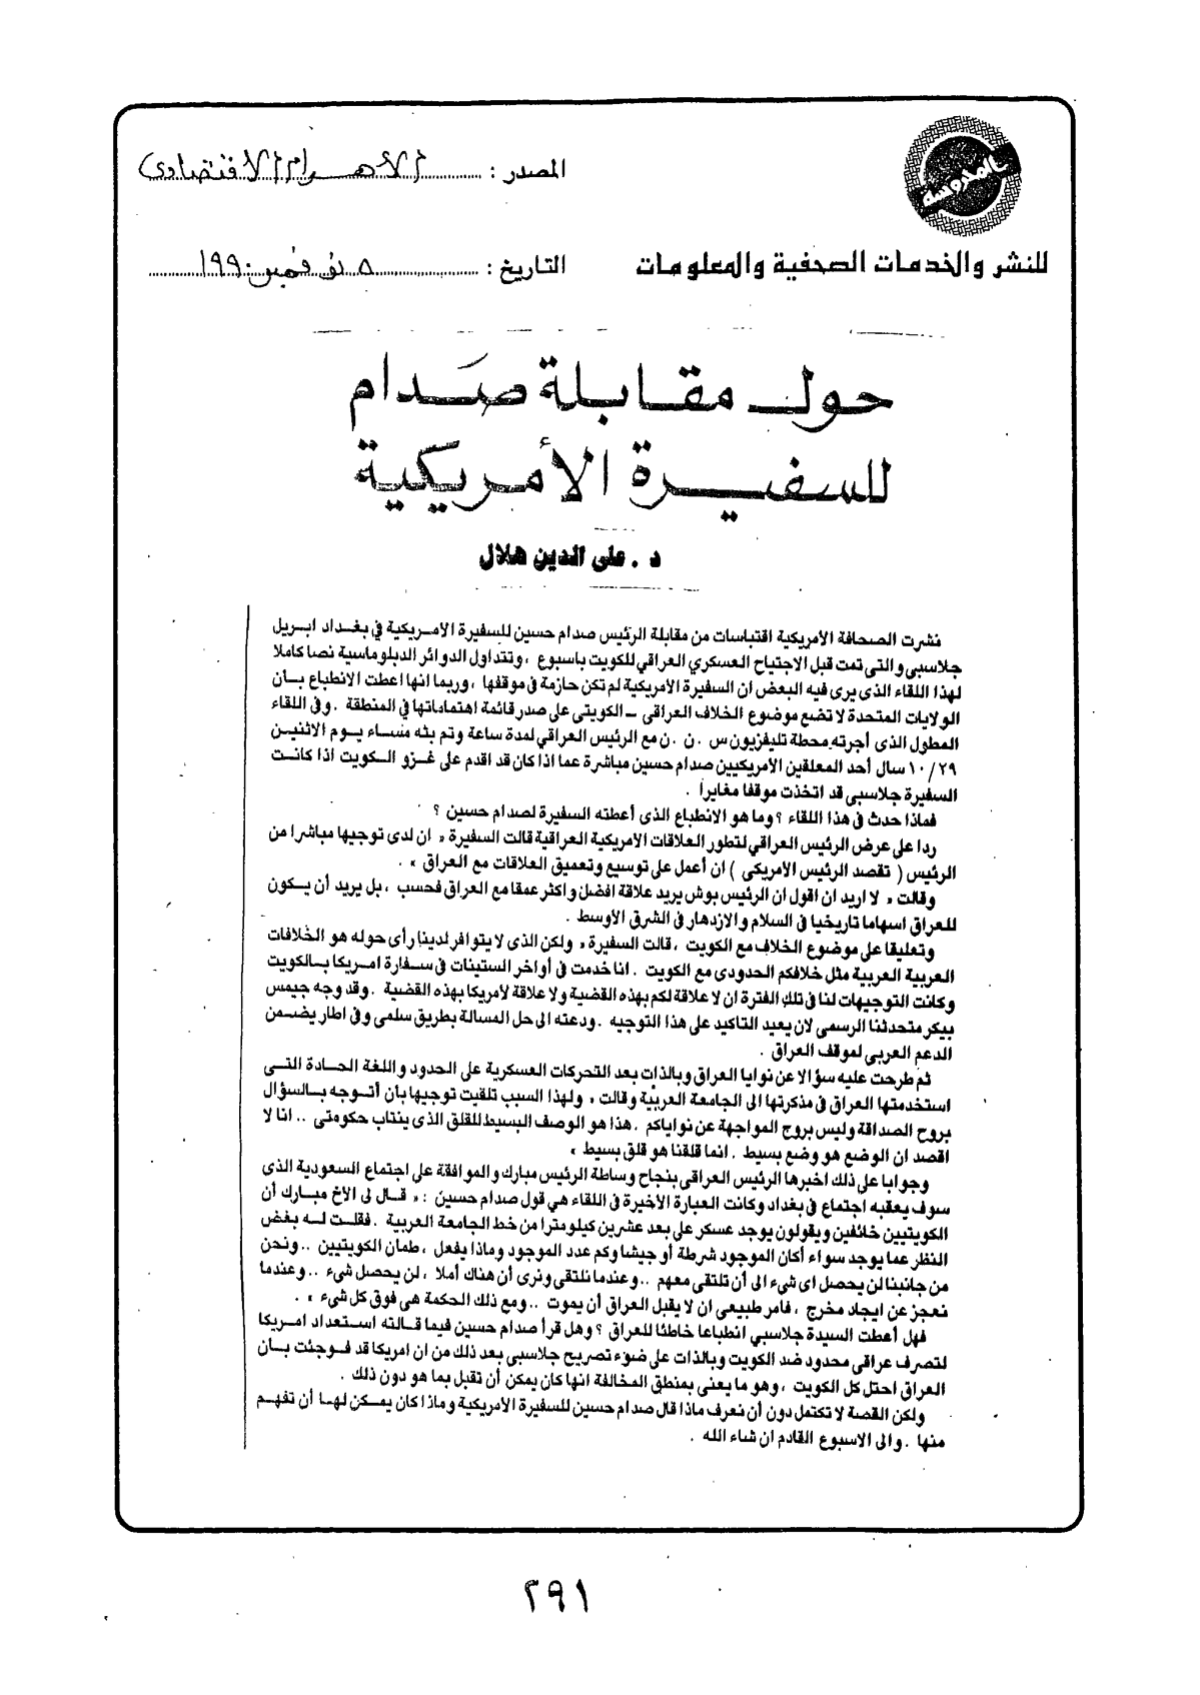 المحروسة
المصدر : الأهرام الاقتصادى
للنشر والخدمات الصحفية والمعلومات
التاريخ : ٥ نوفمبر ١٩٩٠
حول مقابلة صدام
للسفيرة الأمريكية
د . على الدين هلال
نشرت الصحافة الأمريكية اقتباسات من مقابلة الرئيس صدام حسين للسفيرة الامريكية في بغداد ابريل
جلاسبى والتى تمت قبل الاجتياح العسكري العراقي للكويت باسبوع ، وتتداول الدوائر الدبلوماسية نصا كاملا
لهذا اللقاء الذى يرى فيه البعض ان السفيرة الأمريكية لم تكن حازمة في موقفها ، وربما انها اعطت الانطباع بان
الولايات المتحدة لا تضع موضوع الخلاف العراقى - الكويتى على صدر قائمة اهتماداتها في المنطقة . وفى اللقاء
المطول الذى أجرته محطة تليفزيون س . ن . ن مع الرئيس العراقي لمدة ساعة وتم بثه مساء يوم الاثنين
١٠/٢٩ سال أحد المعلقين الأمريكيين صدام حسين مباشرة عما اذا كان قد اقدم على غزو الكويت اذا كانت
السفيرة جلاسبى قد اتخذت موقفا مغايرا .
فماذا حدث في هذا اللقاء ؟ وما هو الانطباع الذى أعطته السفيرة لصدام حسين ؟
ردا على عرض الرئيس العراقي لتطور العلاقات الامريكية العراقية قالت السفيرة « ان لدى توجيها مباشرا من
الرئيس ( تقصد الرئيس الأمريكى ) ان أعمل على توسيع وتعميق العلاقات مع العراق » .
وقالت « لا اريد ان اقول ان الرئيس بوش يريد علاقة افضل واكثر عمقا مع العراق فحسب ، بل يريد أن يكون
للعراق اسهاما تاريخيا في السلام والازدهار في الشرق الأوسط .
وتعليقا على موضوع الخلاف مع الكويت ، قالت السفيرة « ولكن الذى لا يتوافر لدينا رأى حوله هو الخلافات
العربية العربية مثل خلافكم الحدودى مع الكويت . انا خدمت في أواخر الستينات في سفارة امريكا بالكويت
وكانت التوجيهات لنا في تلك الفترة ان لا علاقة لكم بهذه القضية ولا علاقة لأمريكا بهذه القضية . وقد وجه جيمس
بيكر متحدثنا الرسمى لان يعيد التاكيد على هذا التوجيه . ودعته الى حل المسالة بطريق سلمى وفى اطار يضمن
الدعم العربي لموقف العراق .
ثم طرحت عليه سؤالا عن نوايا العراق وبالذات بعد التحركات العسكرية على الحدود واللغة الحادة التى
استخدمتها العراق في مذكرتها الى الجامعة العربية وقالت « ولهذا السبب تلقيت توجيها بأن أتوجه بالسؤال
بروح الصداقة وليس بروح المواجهة عن نواياكم . هذا هو الوصف البسيط للقلق الذى ينتاب حكومتى .. انا لا
اقصد ان الوضع هو وضع بسيط . انما قلقنا هو قلق بسيط »
وجوابا على ذلك اخبرها الرئيس العراقي بنجاح وساطة الرئيس مبارك والموافقة على اجتماع السعودية الذى
سوف يعقبه اجتماع في بغداد وكانت العبارة الأخيرة في اللقاء هي قول صدام حسين : « قال لى الاخ مبارك أن
الكويتيين خائفين ويقولون يوجد عسكر على بعد عشرين كيلومترا من خط الجامعة العربية . فقلت له بغض
النظر عما يوجد سواء أكان الموجود شرطة أو جيشا وكم عدد الموجود وماذا يفعل ، طمان الكويتيين .. ونحن
من جانبنا لن يحصل اى شيء الى أن تلتقى معهم .. وعندما نلتقى ونرى أن هناك أملا ، لن يحصل شيء .. وعندما
نعجز عن ايجاد مخرج ، فامر طبيعى ان لا يقبل العراق أن يموت .. ومع ذلك الحكمة هى فوق كل شيء » .
فهل أعطت السيدة جلاسبي انطباعا خاطئا للعراق ؟ وهل قرأ صدام حسين فيما قالته استعداد امريكا
لتصرف عراقى محدود ضد الكويت وبالذات على ضوء تصريح جلاسبى بعد ذلك من ان امريكا قد فوجئت بان
العراق احتل كل الكويت ، وهو ما يعنى بمنطق المخالفة انها كان يمكن أن تقبل بما هو دون ذلك .
ولكن القصة لا تكتمل دون أن نعرف ماذا قال صدام حسين للسفيرة الأمريكية وماذا كان يمكن لها أن تفهم
منها . والى الاسبوع القادم ان شاء الله .
٢٩١